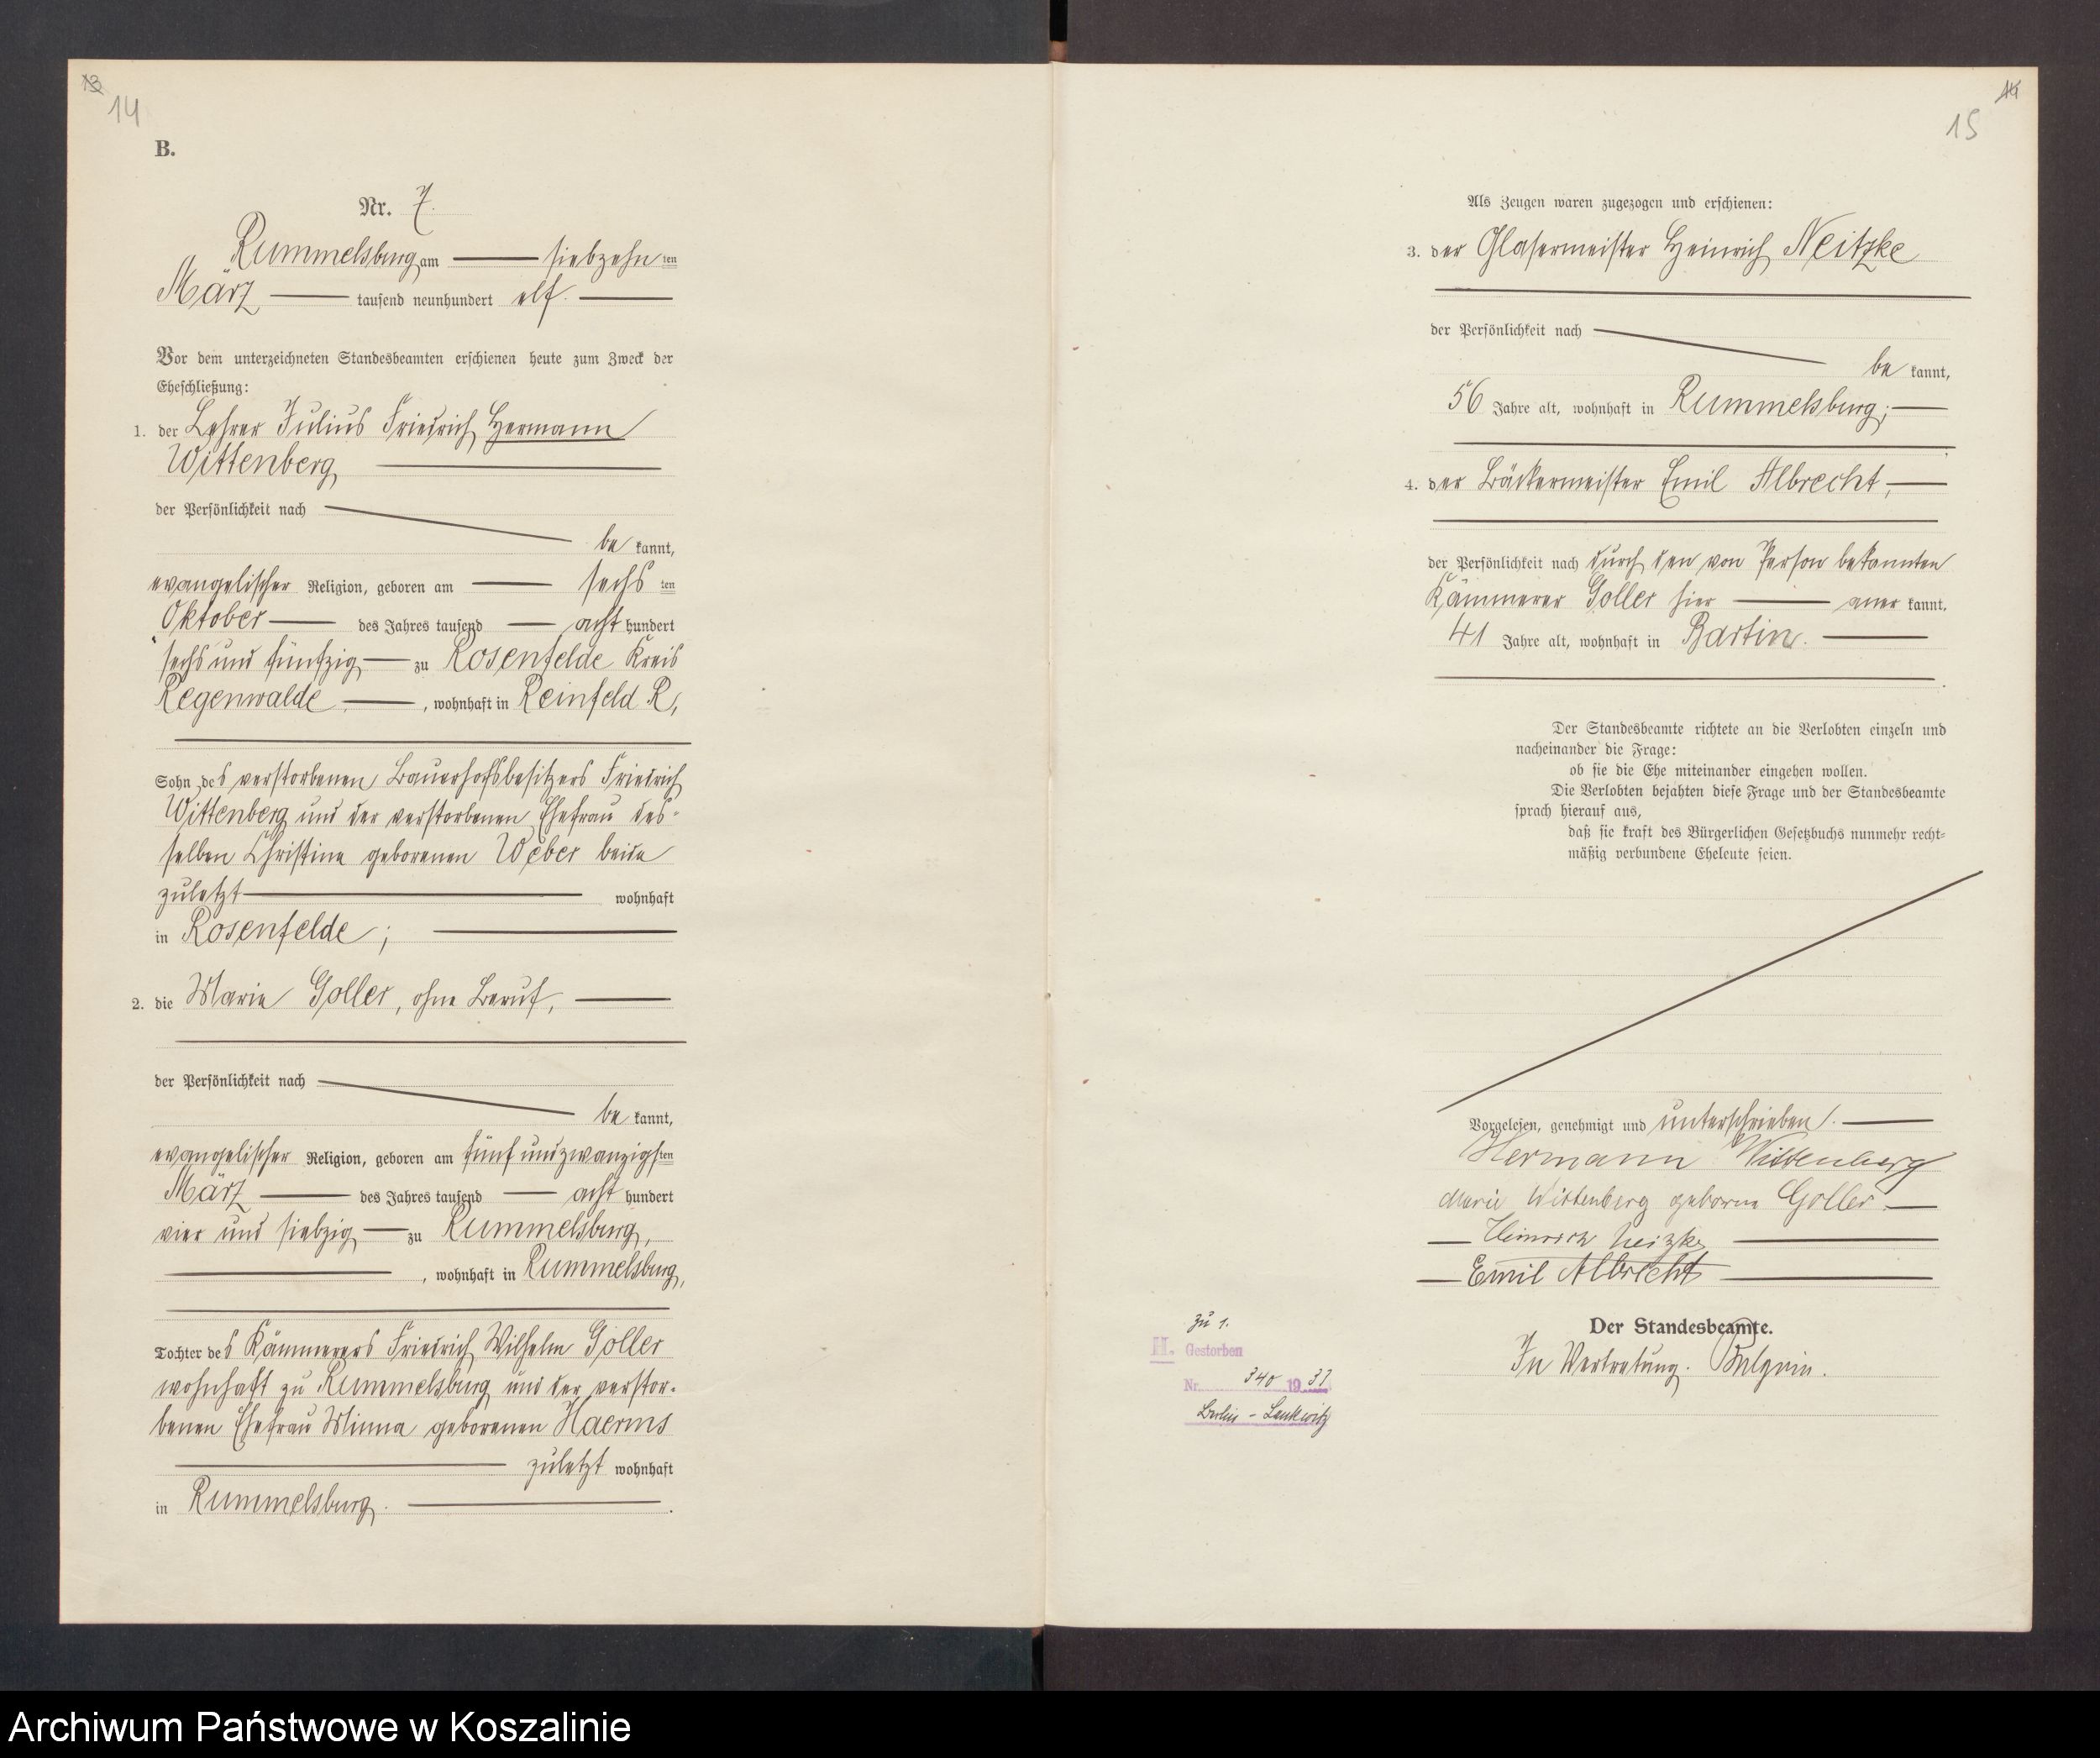 13
14
B.
Nr. 7.
Rummelsburg am — siebzehn ten
März — tausend neunhundert elf. —
Vor dem unterzeichneten Standesbeamten erschienen heute zum Zweck der
Eheschließung:
1. der Lehrer Julius Friedrich Hermann
Wittenberg —
der Persönlichkeit nach —
be kannt,
evangelischer Religion, geboren am — sechs ten
Oktober — des Jahres tausend — acht hundert
sechs und fünfzig — zu Rosenfelde Kreis
Regenwalde —, wohnhaft in Reinfeld R,
Sohn des verstorbenen Bauerhofsbesitzers Friedrich
Wittenberg und der verstorbenen Ehefrau des-
selben Christine geborenen Weber beide
zuletzt — wohnhaft
in Rosenfelde; —
2. die Marie Goller, ohne Beruf, —
der Persönlichkeit nach —
be kannt,
evangelischer Religion, geboren am fünf und zwanzigsten
März — des Jahres tausend — acht hundert
vier und siebzig — zu Rummelsburg,
—, wohnhaft in Rummelsburg,
Tochter des Kämmerers Friedrich Wilhelm Goller
wohnhaft zu Rummelsburg und der verstor-
benen Ehefrau Minna geborenen Haerms
— zuletzt wohnhaft
in Rummelsburg. —.
14
15
Als Zeugen waren zugezogen und erschienen:
3. der Glasermeister Heinrich Neitzke
der Persönlichkeit nach —
be kannt,
56 Jahre alt, wohnhaft in Rummelsburg; —
4. der Bäckermeister Emil Albrecht, —
der Persönlichkeit nach durch den von Person bekannten
Kämmerer Goller hier — aner kannt.
41 Jahre alt, wohnhaft in Bartin. —
Der Standesbeamte richtete an die Verlobten einzeln und
nacheinander die Frage:
ob sie die Ehe miteinander eingehen wollen.
Die Verlobten bejahten diese Frage und der Standesbeamte
sprach hierauf aus,
daß sie kraft des Bürgerlichen Gesetzbuchs nunmehr recht-
mäßig verbundene Eheleute seien.
Vorgelesen, genehmigt und unterschrieben. —
Hermann Wittenberg
Marie Wittenberg geborne Goller. —
— Heinrich Neizke —
— Emil Albrecht —
Der Standesbeamte.
In Vertretung.
zu 1.
H. Gestorben
Nr. 340 1937
Berlin - Lankwitz
Archiwum Państwowe w Koszalinie